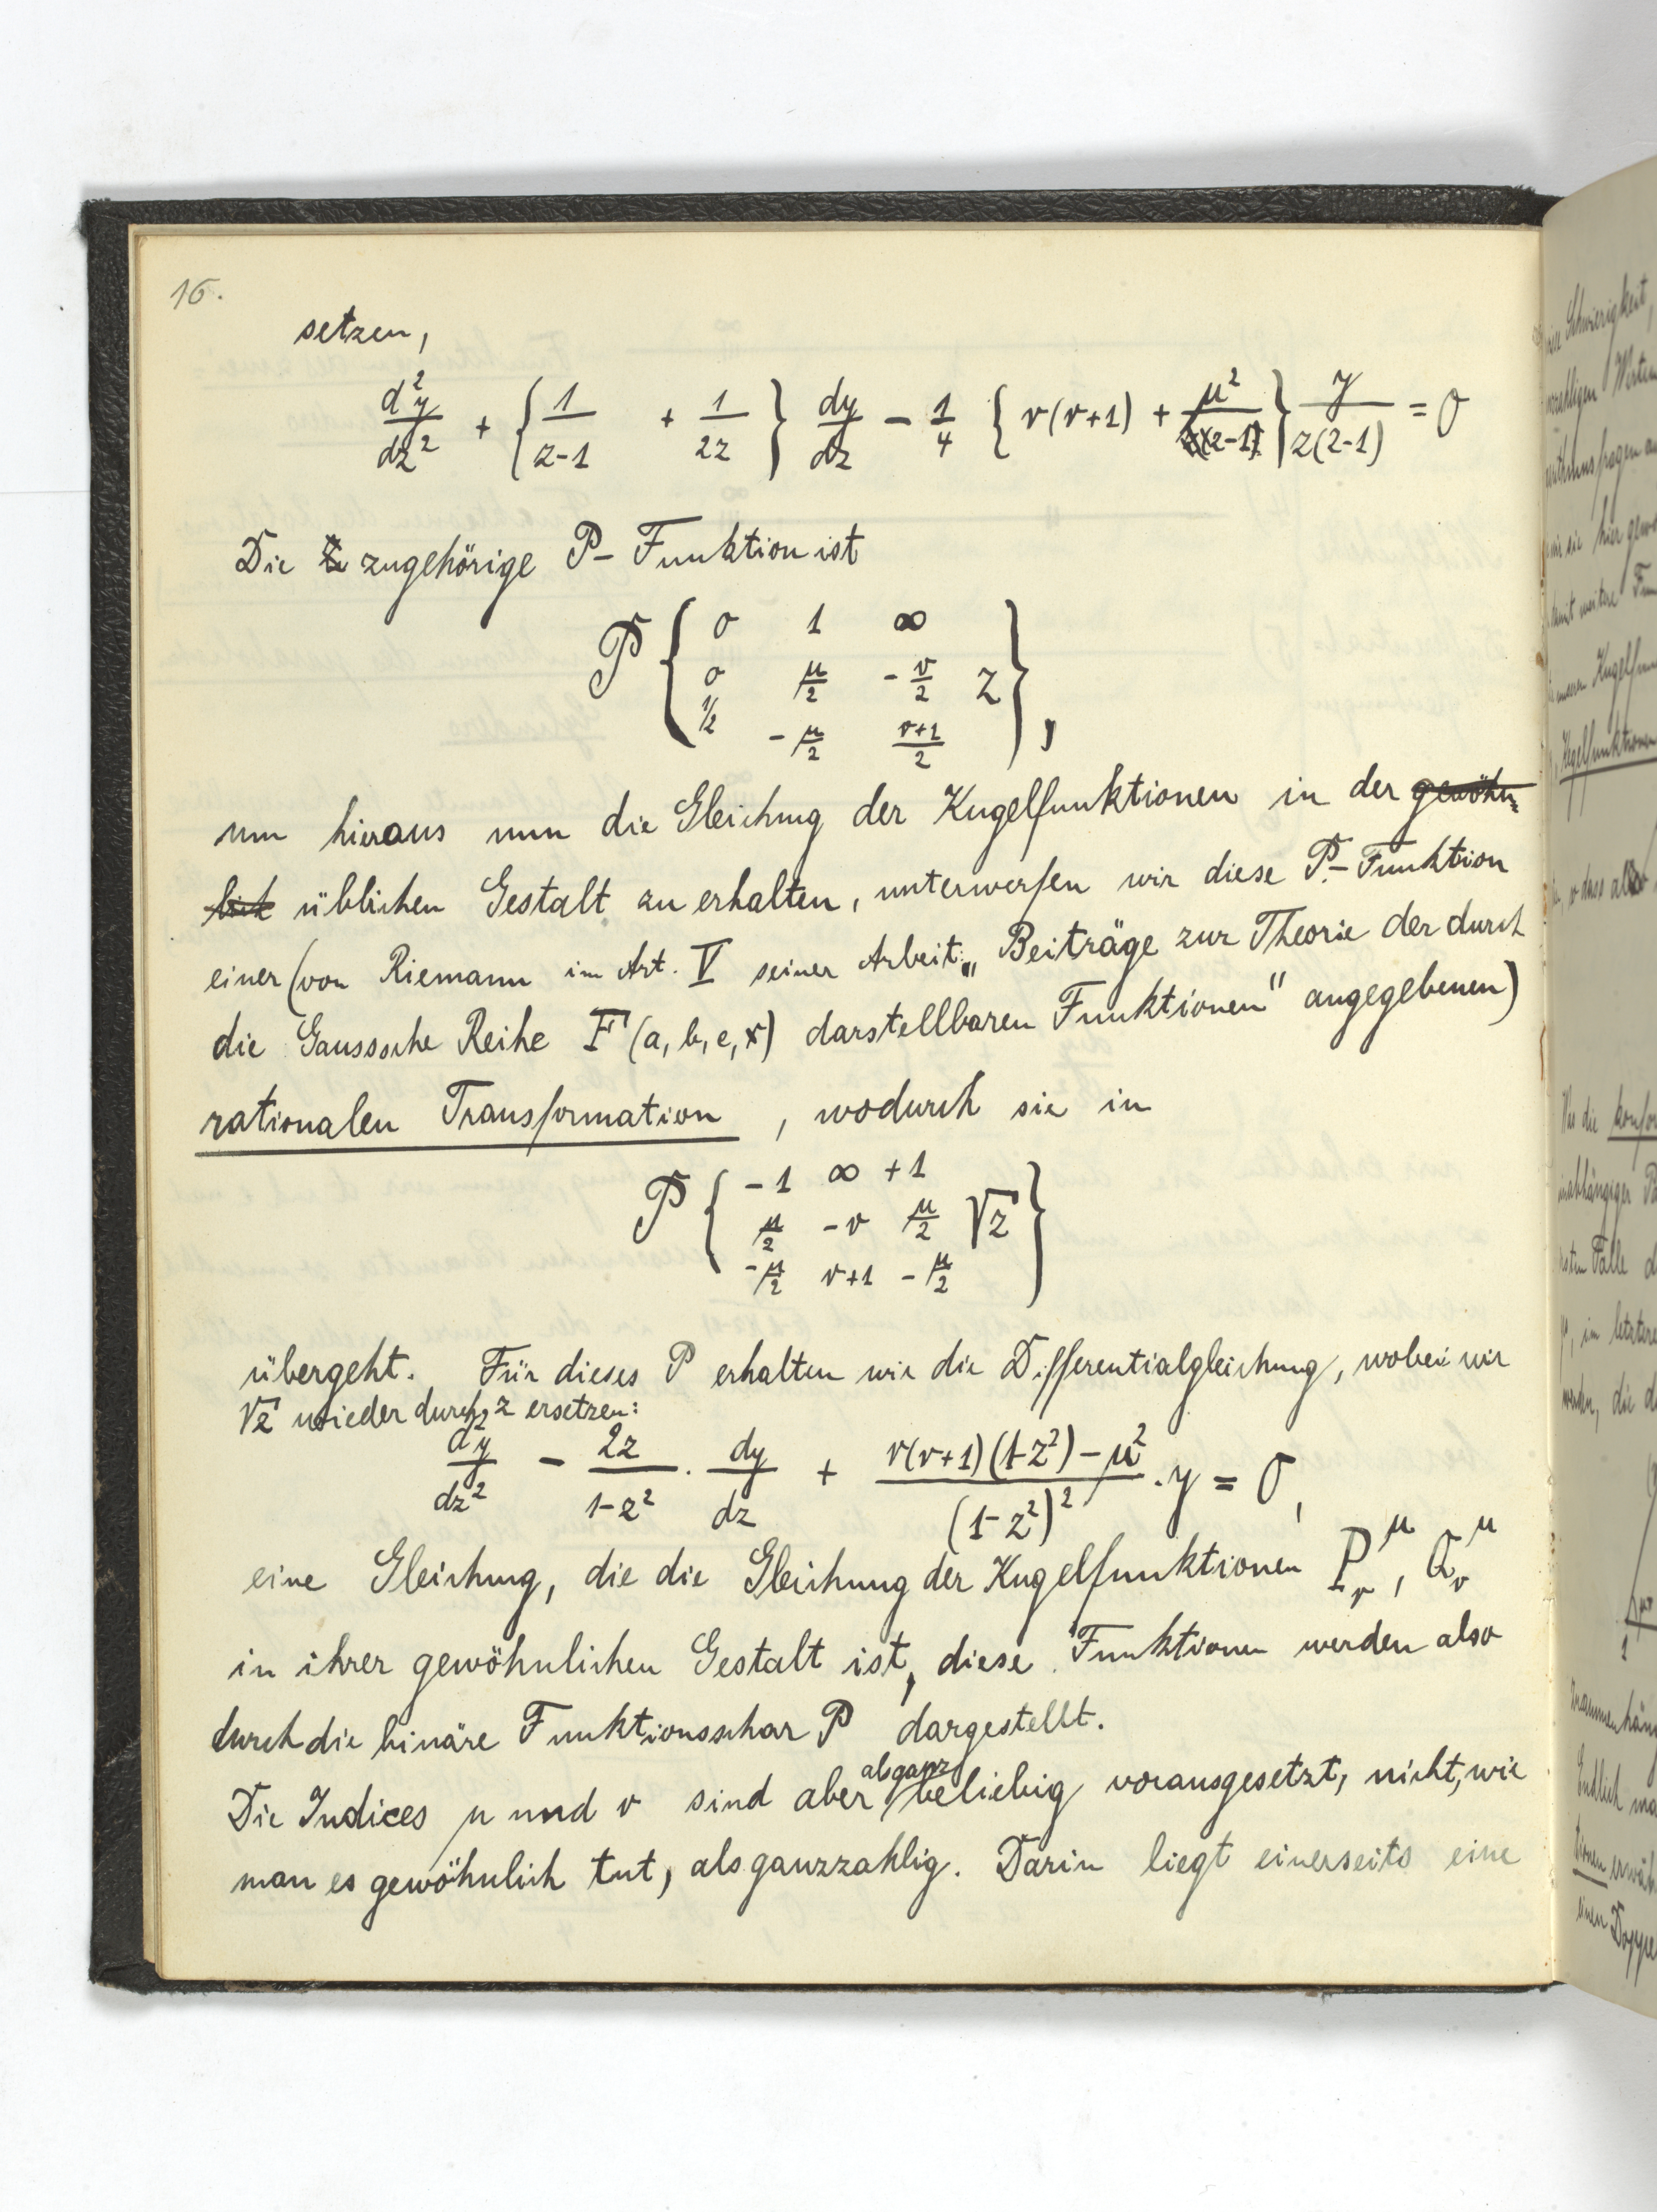 16.
setzen,
d²y/dz² + {1/z-1 + 1/2z} dy/dz - 1/4 {ν(ν+1) + μ²/(z-1)} y/z(z-1) = 0
Die zugehörige P- Funktion ist
P { 0 1 ∞
0 μ/2 -ν/2 z
1/2 -μ/2 ν+1/2 },
um hieraus nun die Gleichung der Kugelfunktionen in der gewöhn=
lich üblichen Gestalt zu erhalten, unterwerfen wir diese P-Funktion
einer (von Riemann im Art. V seiner Arbeit: „Beiträge zur Theorie der durch
die Gausssche Reihe F(a, b, c, x) darstellbaren Funktionen" angegebenen)
rationalen Transformation , wodurch sie in
P { -1 ∞ +1
μ/2 -ν μ/2 √z
-μ/2 ν+1 -μ/2 }
übergeht. Für dieses P erhalten wir die Differentialgleichung, wobei wir
√z wieder durch z ersetzen:
d²y/dz² - 2z/1-z² · dy/dz + ν(ν+1)(1-z²)-μ²/(1-z²)² · y = 0,
eine Gleichung, die die Gleichung der Kugelfunktionen P_ν^μ, Q_ν^μ
in ihrer gewöhnlichen Gestalt ist, diese Funktionen werden also
durch die binäre Funktionsschar P dargestellt.
Die Indices μ und ν sind aber als ganz beliebig vorausgesetzt, nicht, wie
man es gewöhnlich tut, als ganzzahlig. Darin liegt einerseits eine